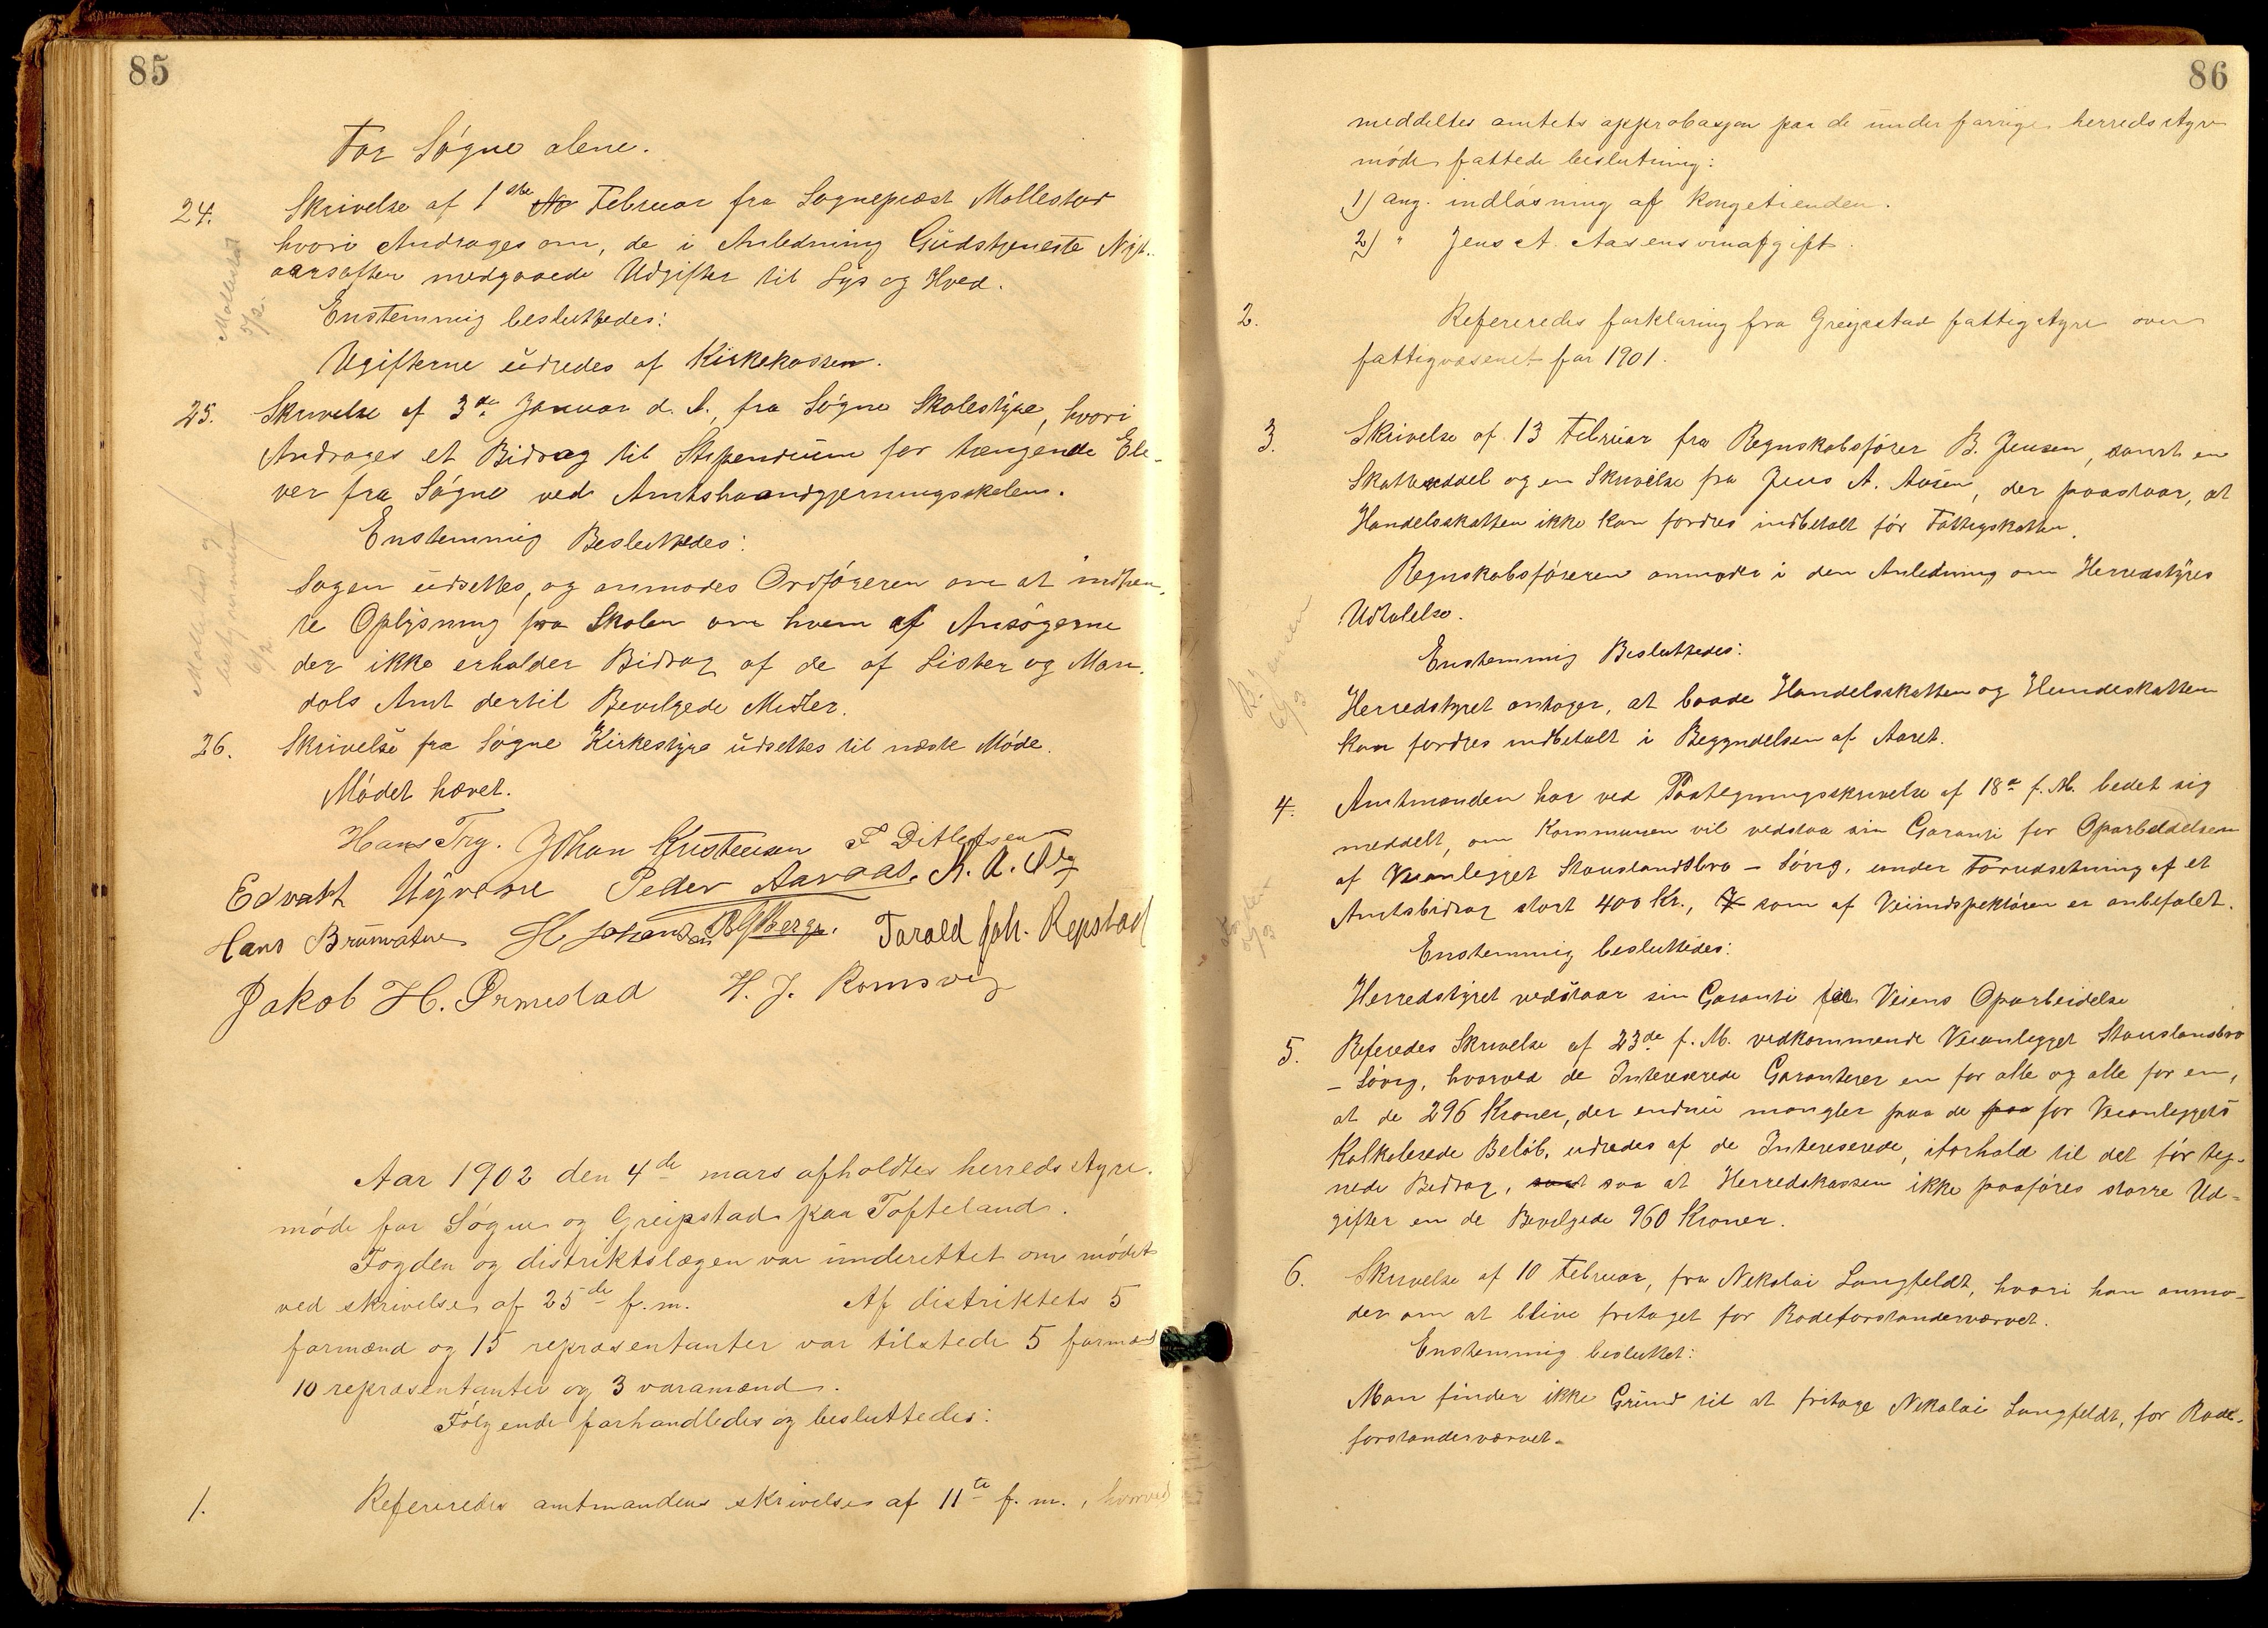 85
For Søgne alene.
24. Skrivelse af 1ste Februar fra Sognepræst Mollestad
hvori Andrages om, de i Anledning Gudstjeneste Nyt-
aarsaften medgaaede Udgifter til Lys og Hved.
Enstemmig besluttedes:
Ugifterne udredes af Kirkekassen.
Mollestad
5/2.
25. Skrivelse af 3de Januar d. A., fra Søgne Skolestyre, hvori
Andrages et Bidrag til Stipendium for trengende Ele-
ver fra Søgne ved Amtshaandgjerningsskolen.
Enstemmig Besluttedes:
Sagen udsettes, og anmodes Ordføreren om at indhen-
te Oplysning fra Skolen om hvem af Ansøgerne
der ikke erholder Bidrag af de af Lister og Man-
dals Amt dertil Bevilgede Midler.
Mollestad og
6/2
26. Skrivelse fra Søgne Kirkestyre udsettes til næste Møde.
Mødet hævet.
Hans Try. Johan Kristensen F Ditlefsen
Edvart Uyvene Peder Aaraas. K. A. Aly
Hans Brunvatne H Johansen Tarald Joh. Repstad
Jakob H. Ormestad H. J. Romsvig
Aar 1902 den 4de mars afholdtes herredsstyre-
møde for Søgne og Greipstad paa Tofteland.
Fogden og distriktslægen var underettet om mødet
ved skrivelse af 25de f. m. Af distriktets 5
formænd og 15 repræsentanter var tilstede 5 formænd
10 repræsentanter og 3 varamænd.
Følgende forhandledes og besluttedes:
1. Refereredes amtmandens skrivelse af 11te f. m., hvorved
86
meddeltes amtets approbasjon paa de under forrige herredsstyre
møde fattede beslutning:
1) ang. indløsning af Kongetienden.
2) " Jens A. Aasens vinafgift.
2. Refereredes forklaring fra Greipstad fattigstyre over
fattigvæsenet for 1901.
3. Skrivelse af 13 Februar fra Regnskabsfører B. Jensen, samt en
Skatteseddel og en Skrivelse fra Jens A. Aasen, der paastaar, at
Handelsskatten ikke kan fordres indbetalt før Fattigskatten.
Regnskabsføreren anmoder i den Anledning om Herredstyres
Udtalelse.
Enstemmig Besluttedes:
Herredstyret antager, at baade Handelsskatten og Hundeskatten
kan fordres indbetalt i Begyndelsen af Aaret.
B. Jensen
6/3
4. Amtmanden har ved Paategningsskrivelse af 18de f. M. bedet sig
meddelt, om Kommunen vil vedstaa sin Garanti for Oparbeidelsen
af Veianlegget Stauslandsbro – Løvig, under Forudsetning af et
Amtsbidrag stort 400 Kr., som af Veiindspektøren er anbefalet.
Enstemmig besluttedes:
Herredstyret vedstaar sin Garanti for Veiens Oparbeidelse
5. Referedes Skrivelse af 23de f. M. vedkommende Veianlegget Stauslansbro
– Løvig, hvorved de Intereserede Garanterer en for alle og alle for en,
at de 296 Kroner, der endnu mangler paa de paa for Veianleggets
Kalkulerede Beløb, udredes af de Intereserede, iforhold til det før teg-
nede Bidrag, samt saa at Herredskassen ikke paaføres større Ud-
gifter en de Bevilgede 960 Kroner.
6. Skrivelse af 10 Februar, fra Nikolai Langfeldt, hvori han anmo-
der om at blive fritaget for Rodeforstandervervet.
Enstemmig besluttet:
Man finder ikke Grund til at fritage Nikolai Langfeldt, for Rode-
forstandervervet.